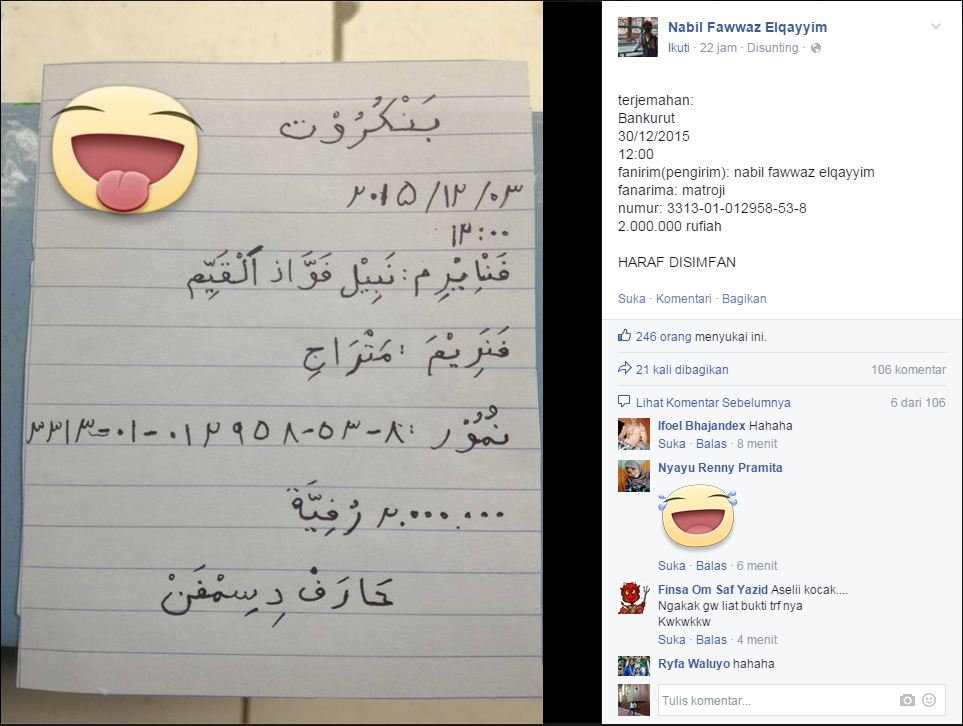 بَنْكُرُوْت
٢٠١٥/١٢/٠٣
١٢:٠٠
فَنِْايْرِم : نَبِيْل فَوَّاذ اَلْقَيِّم
فَنَرِيْمَ : مَتْرَاجِ
نُمُوْر : ٣٣١٣-٠١-٠١٢٩٥٨-٥٣-٨
٢.٠٠٠.٠٠٠ رُفِيَّة
حَارَفْ دِسِمْفَنْ
Nabil Fawwaz Elqayyim
Ikuti · 22 jam · Disunting ·
terjemahan:
Bankurut
30/12/2015
12:00
fanirim(pengirim): nabil fawwaz elqayyim
fanarima: matroji
numur: 3313-01-012958-53-8
2.000.000 rufiah
HARAF DISIMFAN
Suka · Komentari · Bagikan
246 orang menyukai ini.
21 kali dibagikan 106 komentar
Lihat Komentar Sebelumnya 6 dari 106
Ifoel Bhajandex Hahaha
Suka · Balas · 8 menit
Nyayu Renny Pramita
Suka · Balas · 6 menit
Finsa Om Saf Yazid Aselii kocak....
Ngakak gw liat bukti trf nya
Kwkwkkw
Suka · Balas · 4 menit
Ryfa Waluyo hahaha
Tulis komentar...